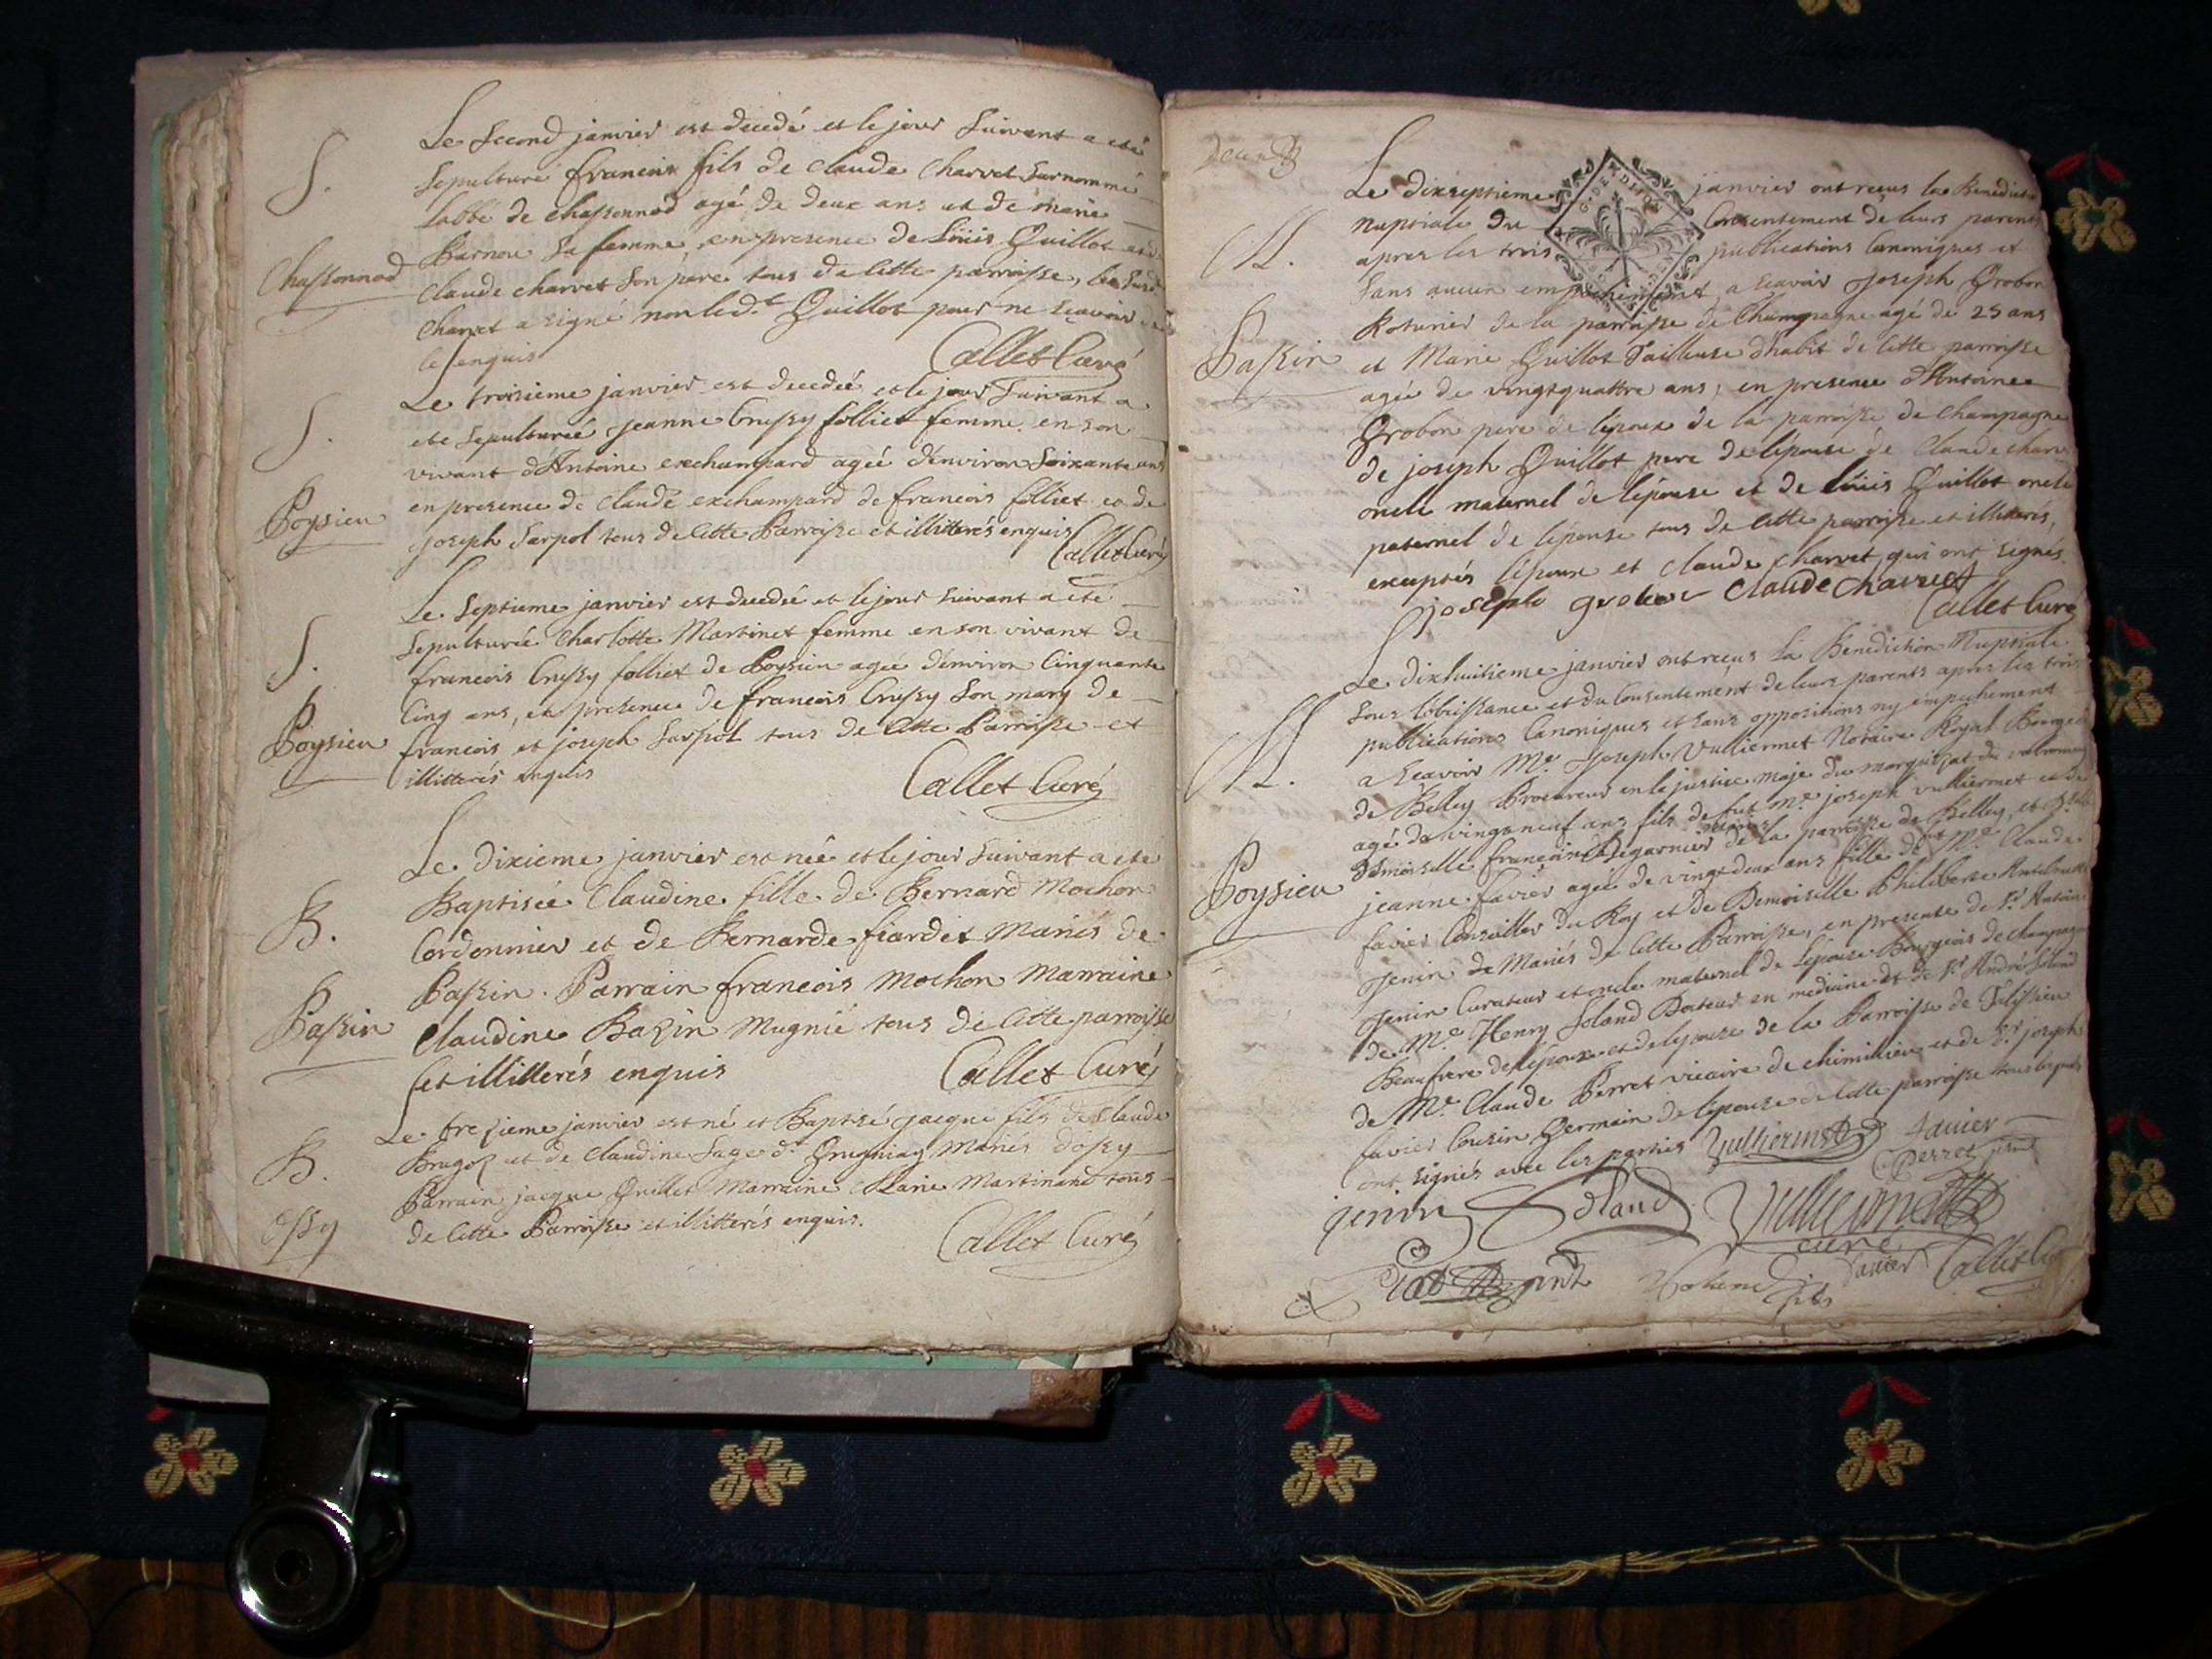 S.
Le second janvier est decedé et le jour suivant a eté
sepulturé francois fils de claude Charvet surnommé
labbé de chassonnod agé de deux ans et de marie
Chassonnod
Barnou sa femme, en presence de Loüis Quillot et de
claude charvet son pere tous de cette parroisse, 
Charvet a signé non led.t Quillot pour ne sçavoir de
ce enquis
Callet Curé
S.
Le troisieme janvier est decedeé et le jour suivant a
eté sepultureé jeanne Crussy folliet femme en son
vivant d'Antoine exchampard ageé d'environ soixante ans
Poysieu
en presence de claude exchampard de francois folliet et de
joseph sarpol tous de cette Parroisse et illitterés enquis
Callet Curé
S.
Le septieme janvier est decedeé et le jour suivant a eté
sepulturée Charlotte Martinet femme en son vivant de
francois Crussy folliet de Poysieu ageé d'environ Cinquante
Poysieu
Cinq ans, en presence de francois Crussy son mary de
francois et joseph sarpol tous de cette Parroisse et
illitterés enquis
Callet Curé
B.
Le dixieme janvier est neé et le jour suivant a eté
Baptiseé Claudine fille de Bernard Mochon
Cordonnier et de Bernarde fiardet Mariés de
Passin
Passin. Parrain francois Mochon Marraine
Claudine Bazin Mugnié tous de cette parroisse
et illitterés enquis
Callet Curé
B.
Le trezieme janvier est né et Baptisé jacque fils de Claude
Brugoz et de Claudine sage d.t Mariés dossy
Parrain jacque Quillet Marraine Marie Martinand tous
ossy
de cette Parroisse et illitterés enquis.
Callet Curé
deux
M.
Le dixseptieme janvier ont receus la Benediction
nuptiale du Consentement de leurs parents
apres les trois publications Canoniques et
G. DE DIJON
sans aucun empechement, a scavoir Joseph Grobon
Roturier de la parroisse de Champagne agé de 25 ans
Passin
et Marie Quillot Tailleuse dhabit de cette parroisse
ageé de vingtquattre ans, en presence d'Antoine
Grobon pere de lépoux de la parroisse de Champagne
de joseph Quillot pere de lépouse de Claude charvet
oncle maternel de lépouse et de Loüis Quillot oncle
paternel de lépouse tous de cette parroisse et illiterés,
exceptés lépoux et claude Charvet qui ont signés.
joseph grobon Claude Charvet
Callet Curé
M.
Le dixhuitieme janvier ont receus La Benediction Nuptiale
sous lobeissance et du Consentement de leurs parents apres les trois
publications Canoniques et sans oppositions ny empechement
a scavoir M.e Joseph Vulliermet Notaire Royal Bourgeois
de Belley Procureur en le justice maje du marquisat du valromey
agé de vingtneuf ans fils de fut M.e joseph vulliermet et de
Demoiselle francoise Degarnier de la parroisse de Belley, et
Poysieu
jeanne favier ageé de vingtdeux ans fille de M.e Claude
favier Conseiller du Roy et de Demoiselle Philiberte
Jenin de Mariés de cette Parroisse, en presence de S.r Antoine
Jenin Curateur et oncle maternel de lépouse Bourgeois de champagne
de M.e Henry Soland Docteur en medicine et de S.r André Soland
Beaufrere de lépoux et de lepouse de la Parroisse de Talissieu
de M.e Claude Perret vicaire de chimillieu et de S.r joseph
favier Cousin Germain de lépouse de cette parroisse tous lesquels
ont signés avec les parties Vulliermet favier
Perret
jenin Soland Vulliermet
curé
favier Callet Curé
fils